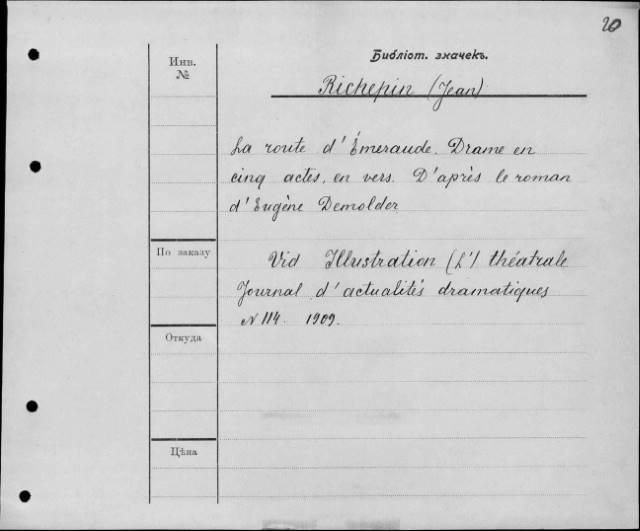 20
Библіот. значекъ.
Инв.
№
Richepin (Jean)
La route d'Émeraude. Drame en
cinq actes, en vers. D'après le roman
d'Eugène Demolder
По заказу
Vid Illustration (L') théatrale
Journal d'actualités dramatiques
№ 114. 1909.
Откуда
Цѣна